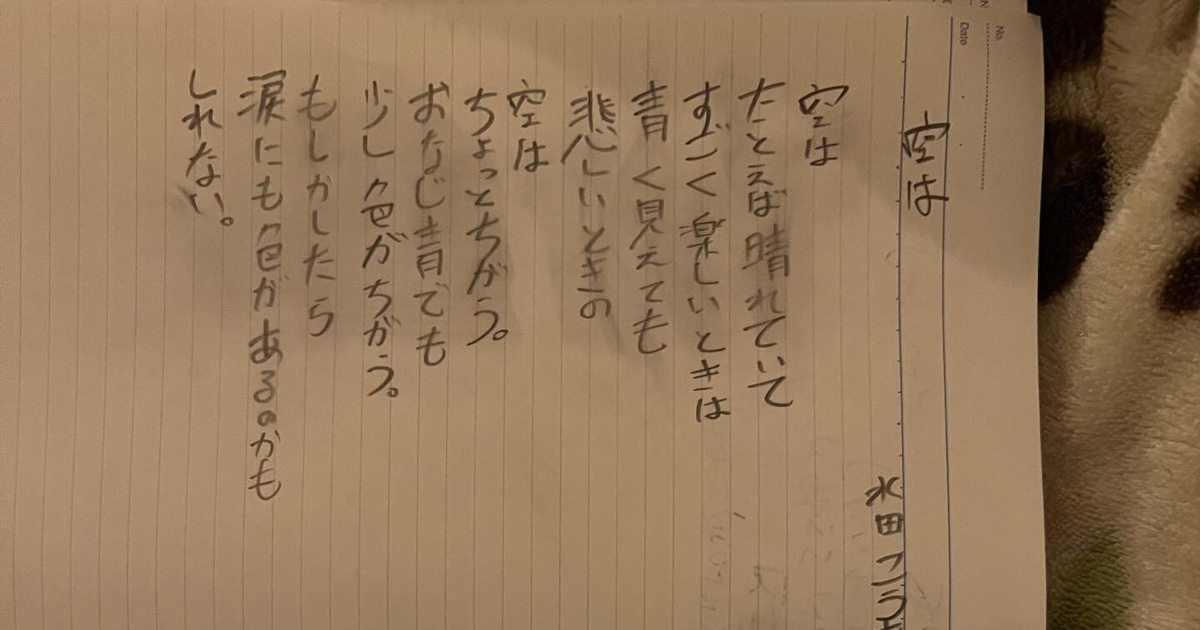 No.
Date
空は
水田こう
空は
たとえば晴れていて
すごく楽しいときは
青く見えても
悲しいときの
空は
ちょっとちがう。
おなじ青でも
少し色がちがう。
もしかしたら
涙にも色があるのかも
しれない。